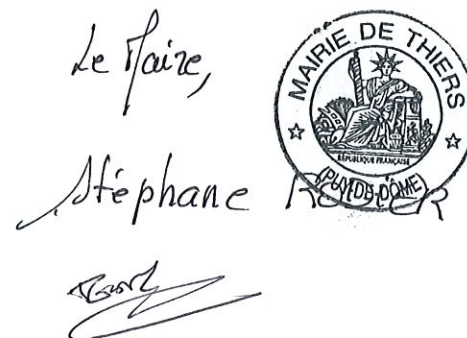 Le Maire,
MAIRIE DE THIERS
RÉPUBLIQUE FRANÇAISE
(PUY-DE-DÔME)
Stéphane